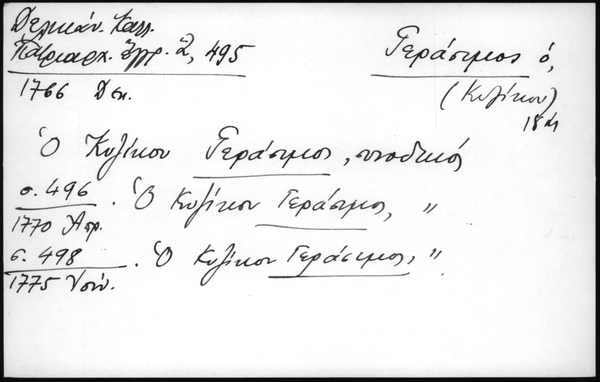 Δελικάν. Καλλ.
Πατριαρχ. Ἔγγρ. 2, 495
Γεράσιμος ὁ,
(Κυζίκου)
18 αἰ
1766 Δεκ.
Ὁ Κυζίκου Γεράσιμος, συνοδικός
σ. 496 . Ὁ Κυζίκου Γεράσιμος, "
1770 Ἀπρ.
σ. 498 . Ὁ Κυζίκου Γεράσιμος, "
1775 Ἰούν.